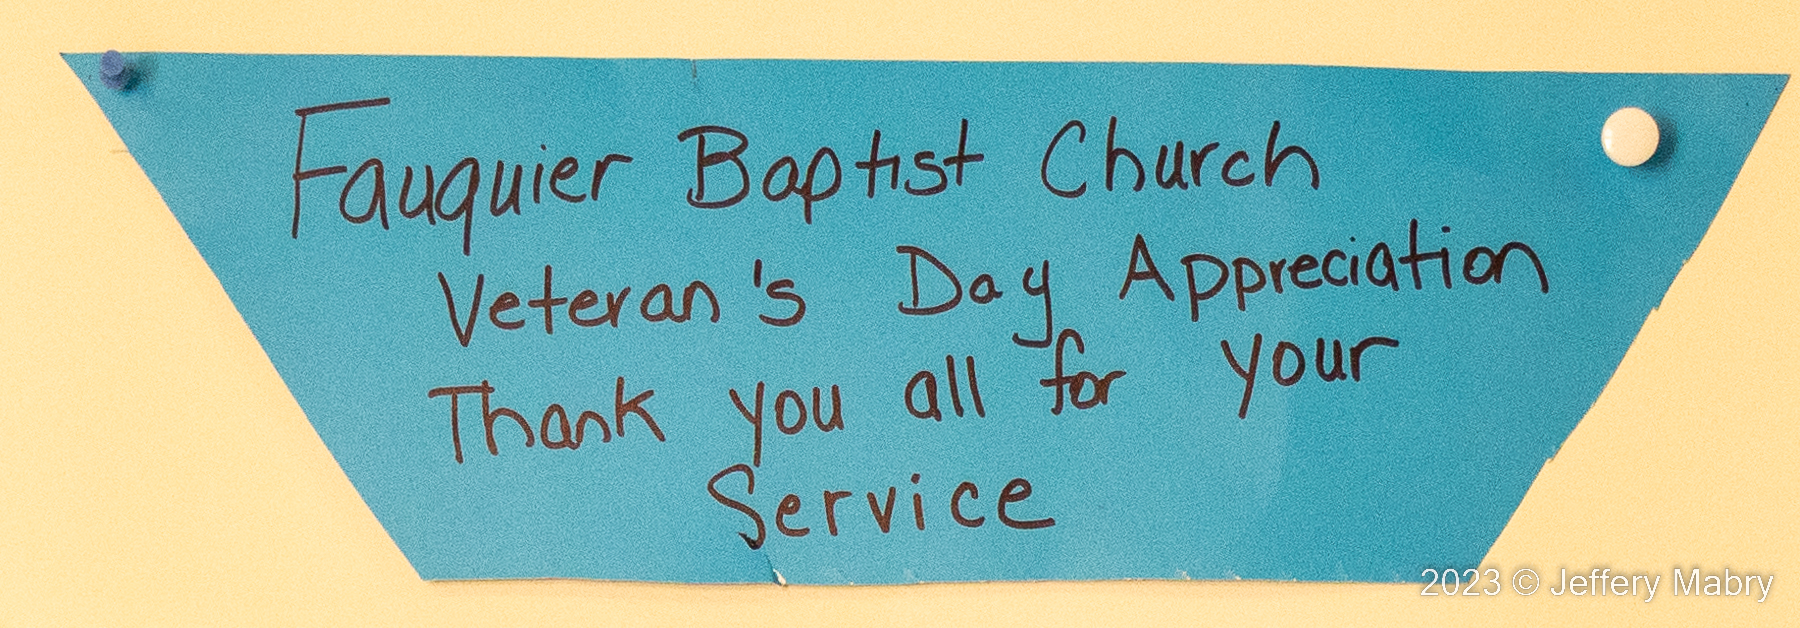 Fauquier Baptist Church
Veteran's Day Appreciation
Thank you all for your
Service
2023 © Jeffery Mabry